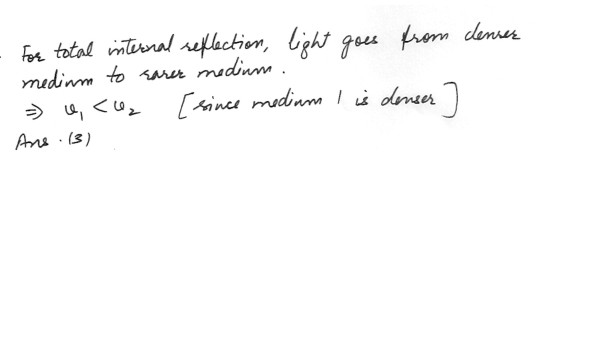 For total internal reflection, light goes from denser
medium to rarer medium.
⇒ v₁ < v₂ [since medium 1 is denser]
Ans. (3)